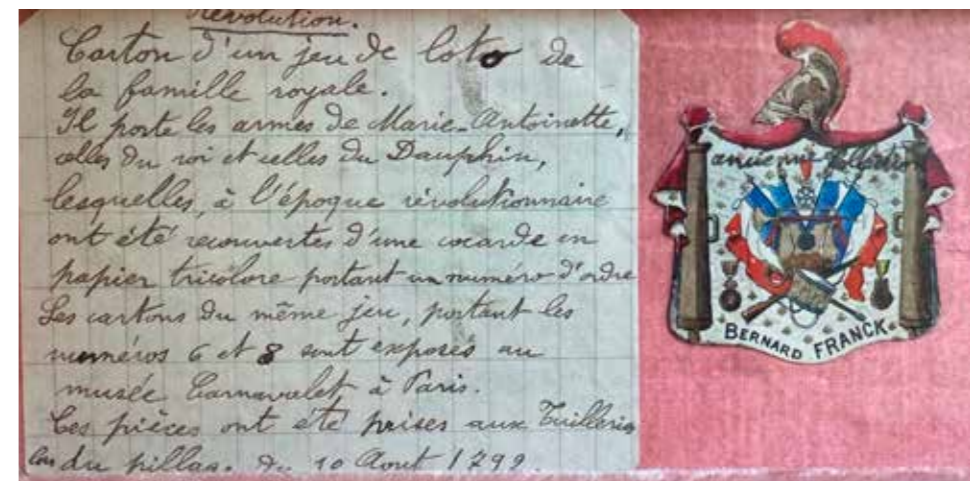 Révolution.
Carton d'un jeu de loto de
la famille royale.
Il porte les armes de Marie-Antoinette,
celles du roi et celles du Dauphin,
lesquelles, à l'époque révolutionnaire
ont été recouvertes d'une cocarde en
papier tricolore portant un numéro d'ordre
Les cartons du même jeu, portant les
numéros 6 et 8 sont exposés au
musée Carnavalet à Paris.
Ces pièces ont été prises aux Tuilleries
lors du pillage du 10 Aout 1792.
ancienne collection
BERNARD FRANCK